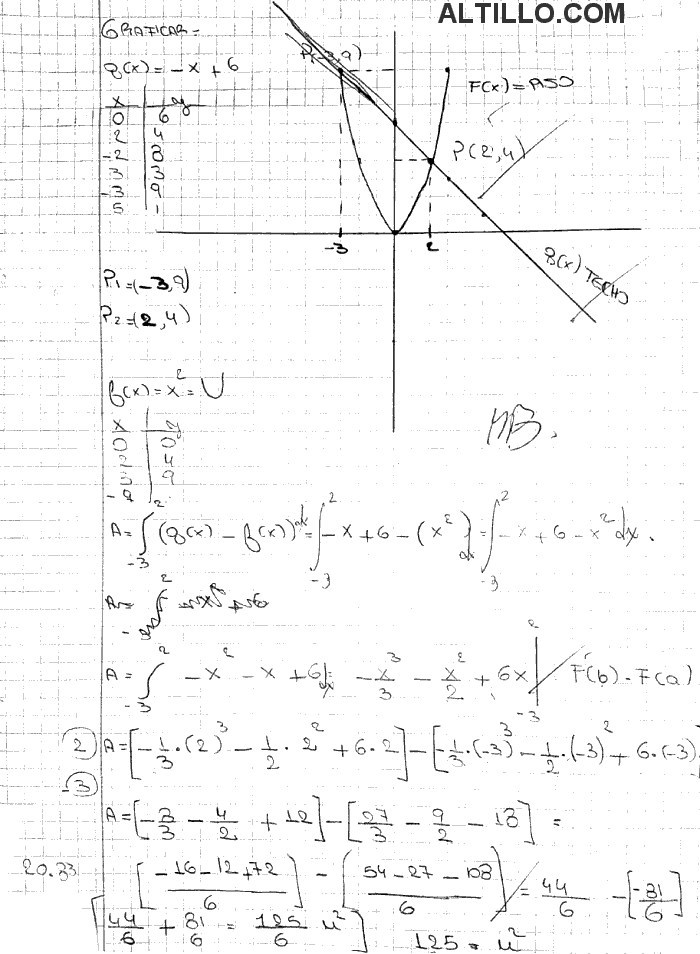 ALTILLO.COM
GRAFICAR =
g(x) = -x + 6
x y
0 6
2 4
-2 8
3 3
-3 9
5 1
F(x) = PISO
P(2,4)
-3 2
g(x) TECHO
P1=(-3,9)
P2=(2,4)
f(x) = x² = U
x y
0 0
2 4
3 9
MB.
A = ∫-3^2 (g(x) - f(x)) dx = ∫-3^2 -x + 6 - (x²) dx = ∫-3^2 -x + 6 - x² dx.
A = ∫-3^2 -x² - x + 6 dx = -x³/3 - x²/2 + 6x |-3^2 F(b) - F(a)
2 A = [-1/3 · (2)³ - 1/2 · 2² + 6·2] - [-1/3 · (-3)³ - 1/2 · (-3)² + 6·(-3)]
-3
A = [-8/3 - 4/2 + 12] - [27/3 - 9/2 - 18] =
20.83 [(-16-12+72)/6] - [(54-27-108)/6] = 44/6 - [-81/6]
[44/6 + 81/6 = 125/6 u²] 125 = u²